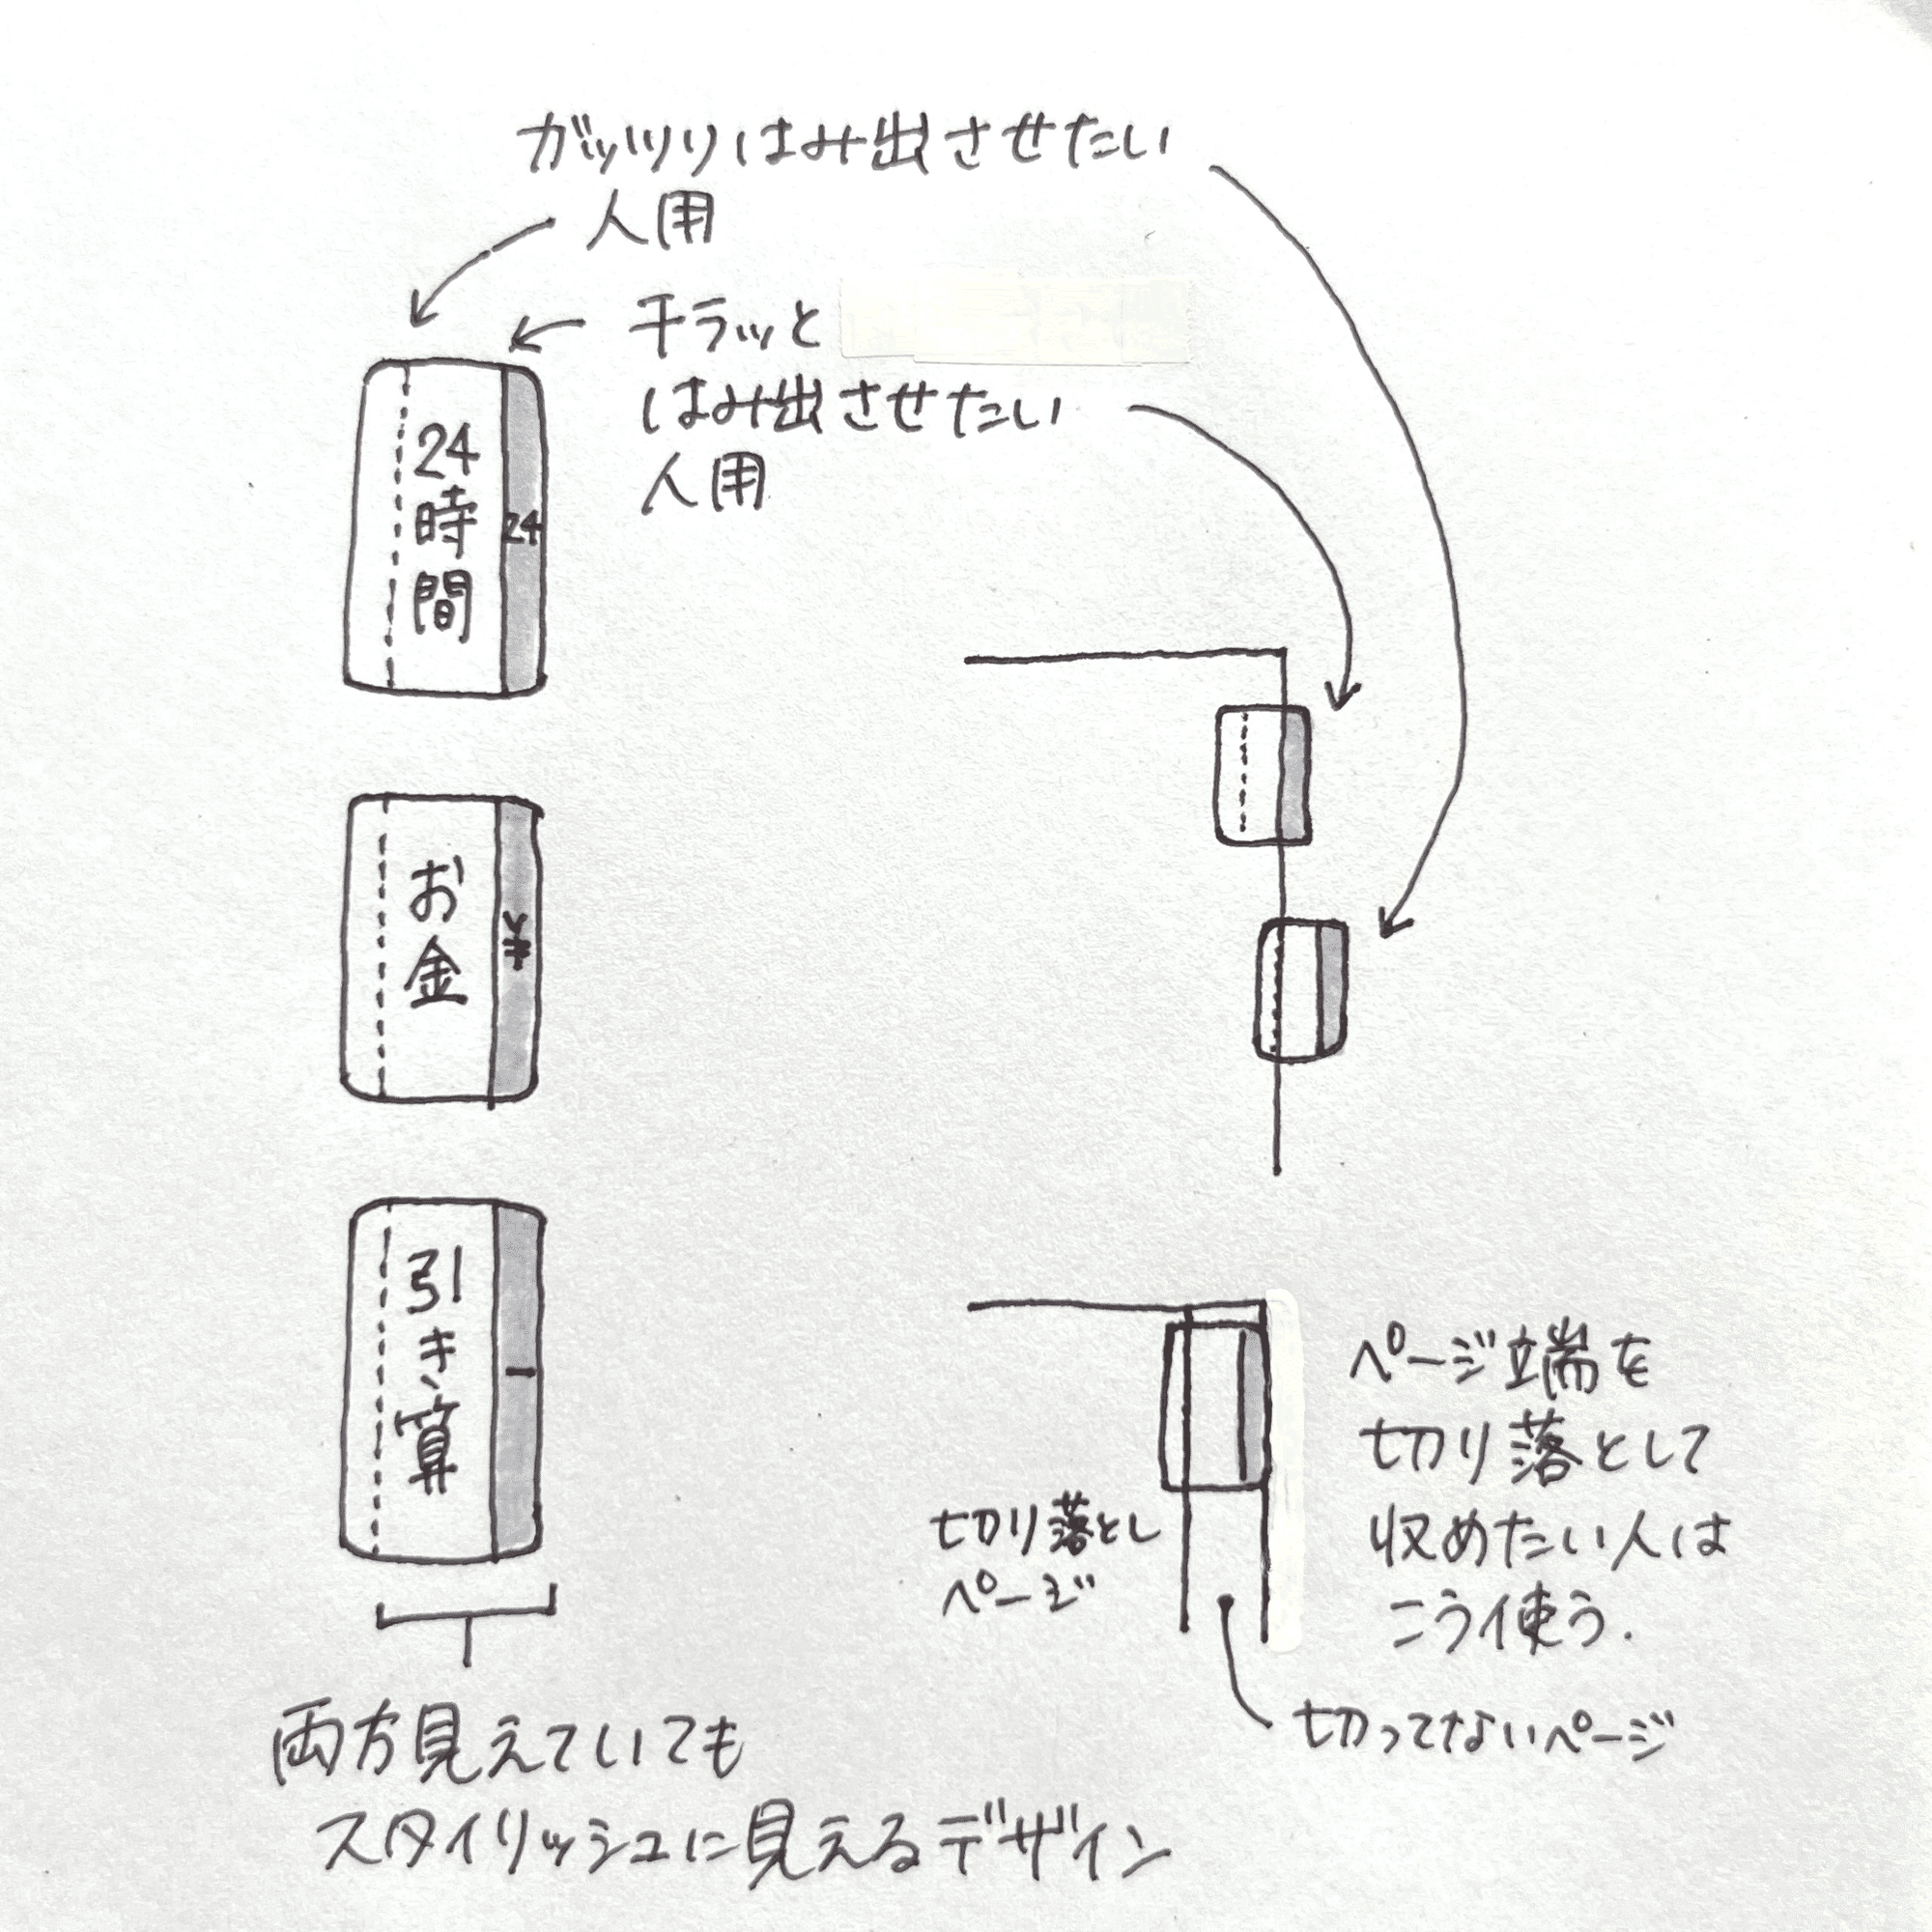 ガッツリはみ出させたい
人用
チラッと
はみ出させたい
人用
24時間
24
お金
¥
引き算
ー
切り落とし
ページ
ページ端を
切り落として
収めたい人は
こう使う.
切ってないページ
両方見えていても
スタイリッシュに見えるデザイン